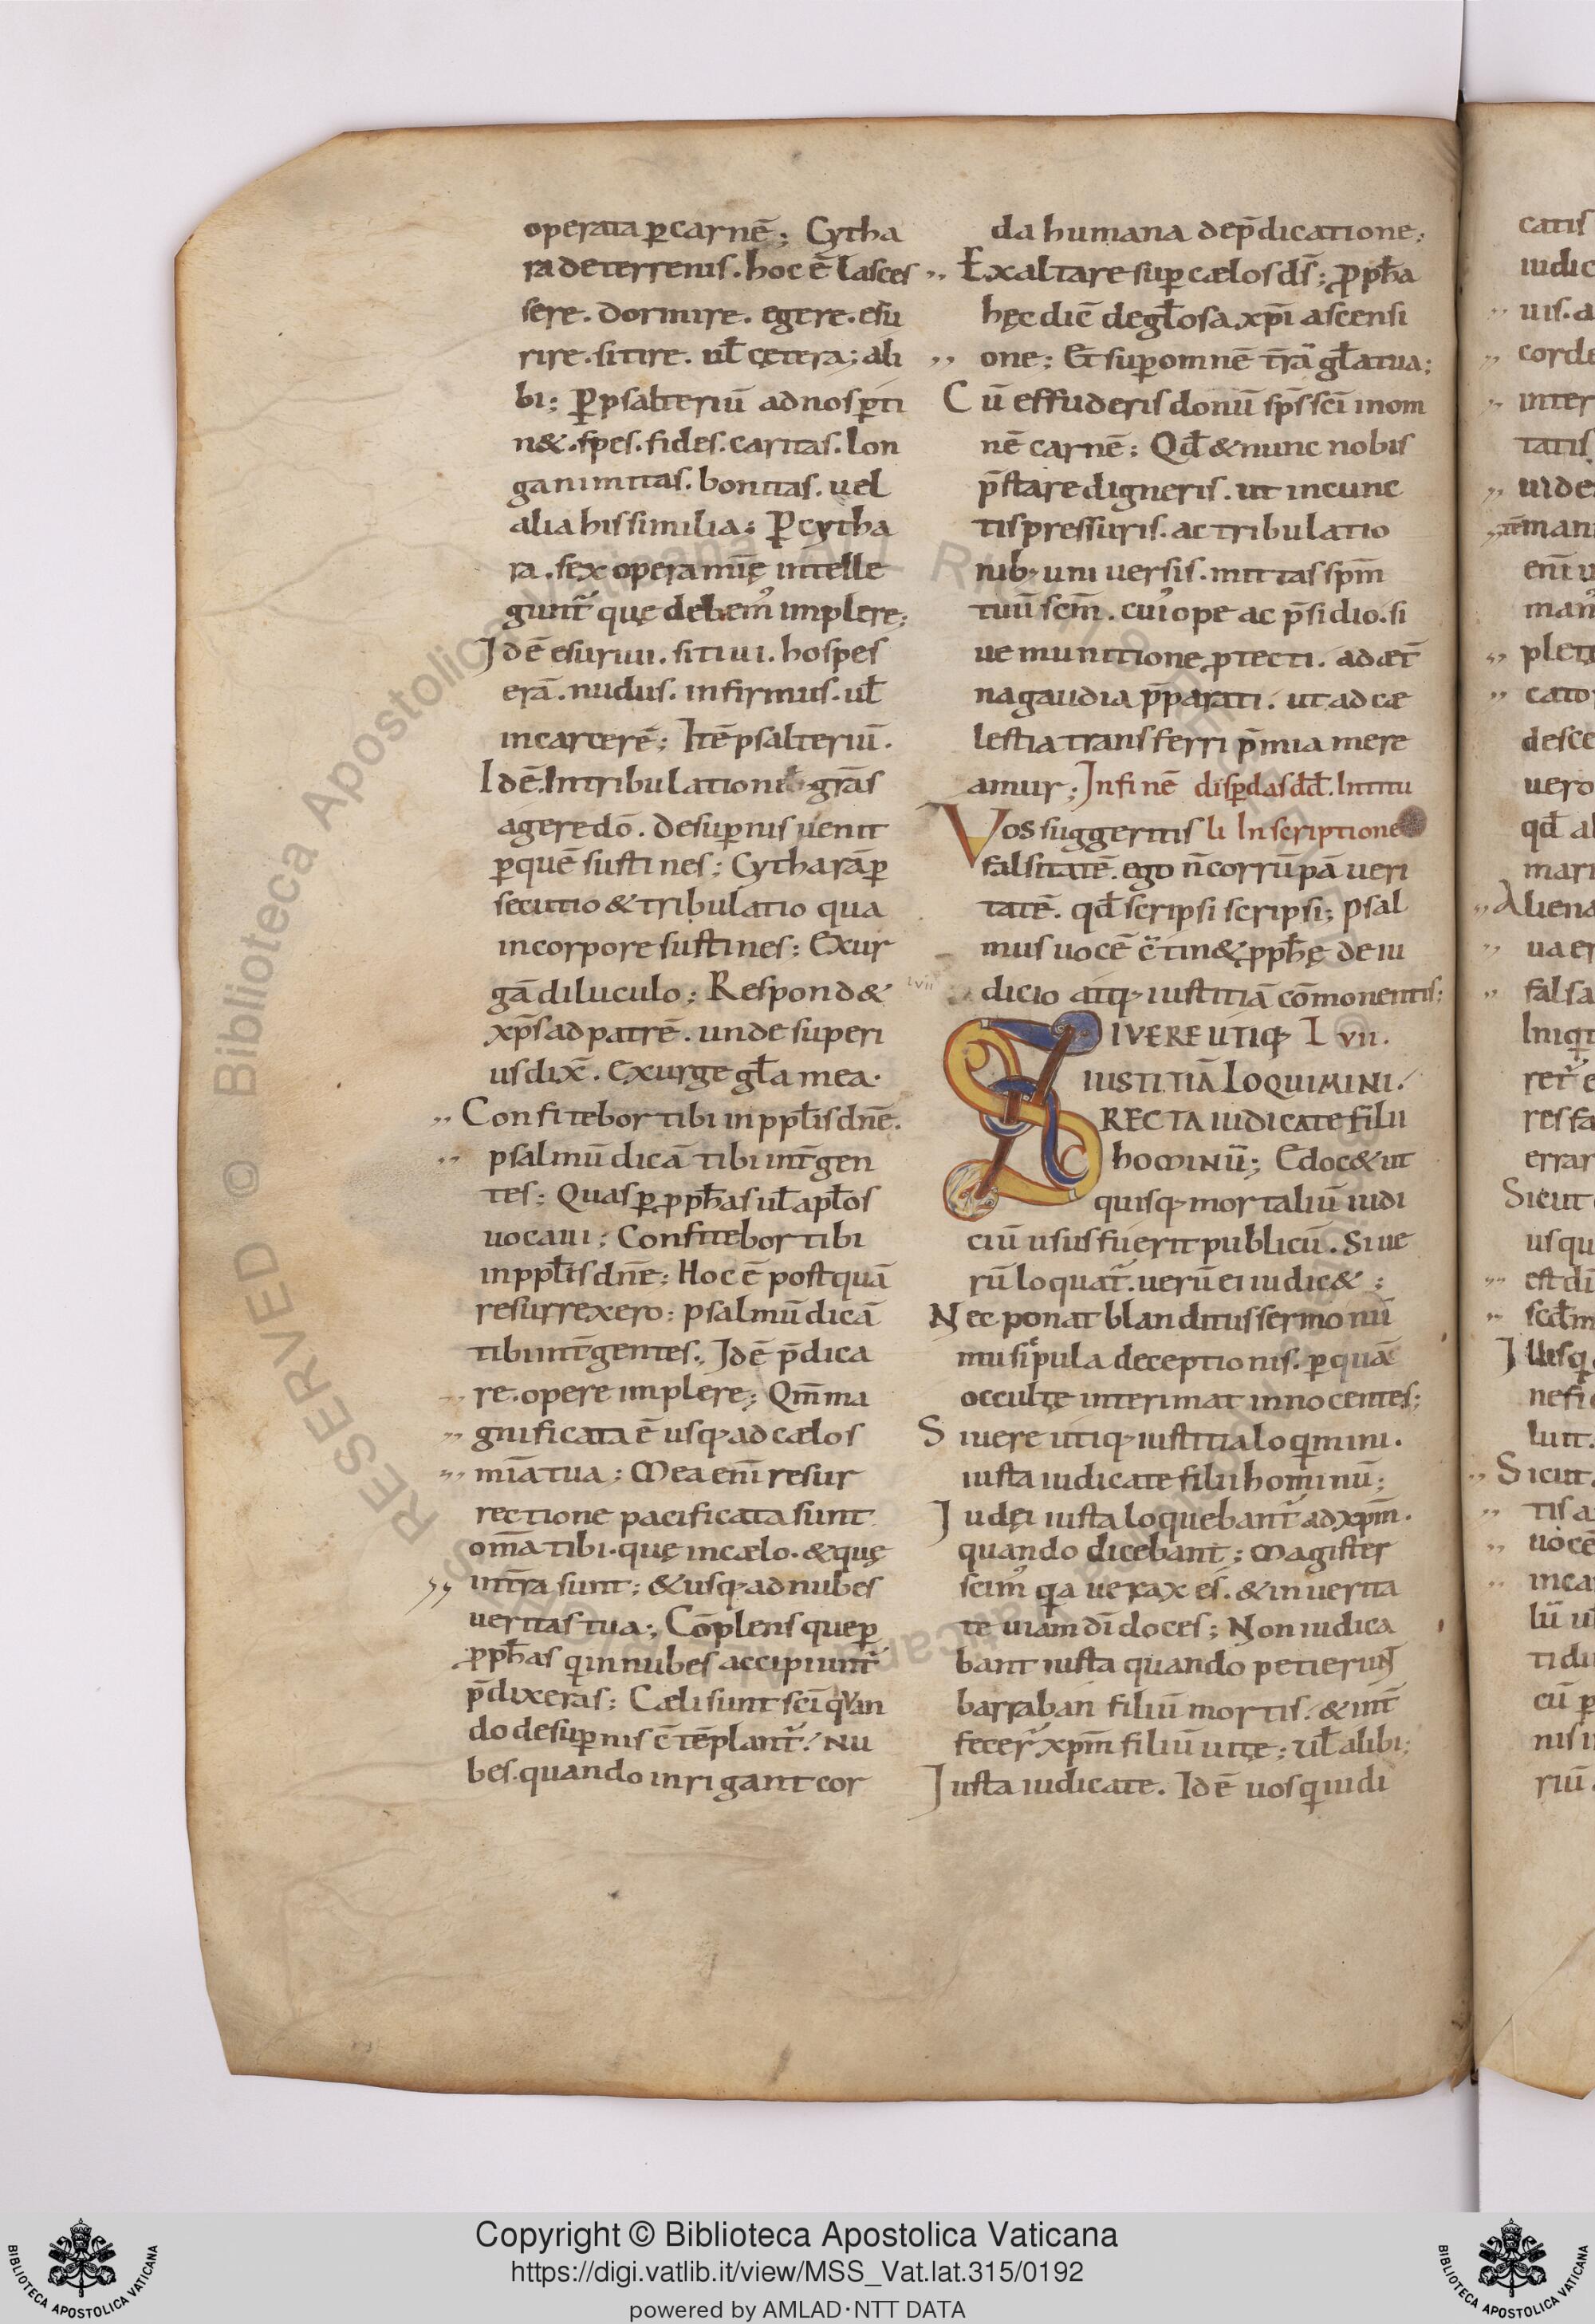 operata ꝑ carnē; Cytha
ra de terrenis. hoc ē lasces
sere. dormire. egere. esu
rire. sitire. uł cętera; ali
bi; P̱ psalteriū ad nos ꝑti
n&. spes. fides. caritas. lon
ganimitas. bonitas. uel
alia his similia; P̱ cytha
ra. sex opera mīę intelle
gunt̄ quę debem᾽ implere;
Idē esuriui. sitiui. hospes
erā. nudus. infirmus. uł
in carcere; Itē psalteriū.
Idē. In tribulationib; grās
agere dō. desupernis uenit
ꝑ quē sustines; Cytharā ꝑ
secutio & tribulatio qua
in corpore sustines; Exur
gā diluculo; Respond&
xp̄s ad patrē. unde superi
us dix̄. Exurge gła mea.
,, Confitebor tibi in pplīs dnē.
,, psalmū dicā tibi int̄ gen
tes; Quas ꝑ ꝓpħas uł apłos
uocaui; Confitebor tibi
in pplīs dnē; Hoc ē postquā
resurrexero; psalmū dicā
tibi int̄ gentes; Idē p̄dica
re. opere implere; Qm̄ ma
,, gnificata ē usq; ad cælos
,, mīa tua; Mea enī resur
rectione pacificata sunt
om̄a tibi. quę in cælo. & quę
,, int̄ra sunt; & usq; ad nubes
ueritas tua; Cōplens que ꝑ
ꝓpħas qi in nubes accipiunt̄
p̄dixeras; Cæli sunt scī qVan
do desupernis c̄tēplant̄. Nu
bes. quando inrigant cor
da humana de p̄dicatione;
,, Exaltare suꝑ cælos ds̄; Ꝓpħa
hęc dic̄ de głosa xpī ascensi
,, one; Et suꝑ omnē t̄rā gła tua;
Cū effuderis donū sps̄ scī in om
nē carnē; Qd̄ & nunc nobis
p̄stare digneris. ut incunc
tis pressuris. ac tribulatio
nib; uniuersis. mittas spm̄
tuū scm̄. cui᾽ ope ac p̄sidio. si
ue munitione ꝓtecti. ad æt̄
na gaudia p̄parati. ut ad cæ
lestia transferri p̄mia mere
amur; In finē disꝑdas dd̄. In titu
Vos suggeritis li Inscriptione
falsitatē. ego n̄ corrūpā ueri
tatē. qd̄ scripsi scripsi; psal
mus uocē c̄tin& ꝓpħę de iu
lvii dicio atq; iustitiā cōmonentis;
SI VERE UTIQ; Lvii.
IUSTITIĀ LOQUIMINI.
RECTA IUDICATE FILII
HOMINŪ; Edoc& ut
quisq; mortaliū iudi
ciū usus fuerit publicū. Si ue
rū loquat̄. uerū ei iudic&;
Nec ponat blanditus sermo nū
musipula deceptionis. ꝑ quā
occultę interimat innocentes;
Si uere utiq; iustitia loqimini.
iusta iudicate filii hominū;
Iudęi iusta loquebant̄ ad xpm̄.
quando dicebant; Magister
scim᾽ qa uerax es. & in uerita
te uiam dī doces; Non iudica
bant iusta quando petierunt
barraban filiū mortis. & int̄
fecer̄ xpm̄ filiū uitę; uł alibi;
Iusta iudicate. Idē uos qi iudi
catis
iudic
,, uis. a
,, corde
,, inter
tatis
,, uide
mani
enī u
man᾽
,, pletę
,, cato
desce
uero
qd̄ al
mari
,, Aliena
,, ua er
,, falsa
Iniqi
ret̄ e
res fa
errar
Sicut
usqu
,, est dī
,, scd̄m
Illisq
nefi
luit.
,, Sicut
,, tis a
,, uocē
,, inca
lū ul
ti di
cū p
nis i
riū
Copyright © Biblioteca Apostolica Vaticana
https://digi.vatlib.it/view/MSS_Vat.lat.315/0192
powered by AMLAD·NTT DATA
BIBLIOTECA APOSTOLICA VATICANA
BIBLIOTECA APOSTOLICA VATICANA